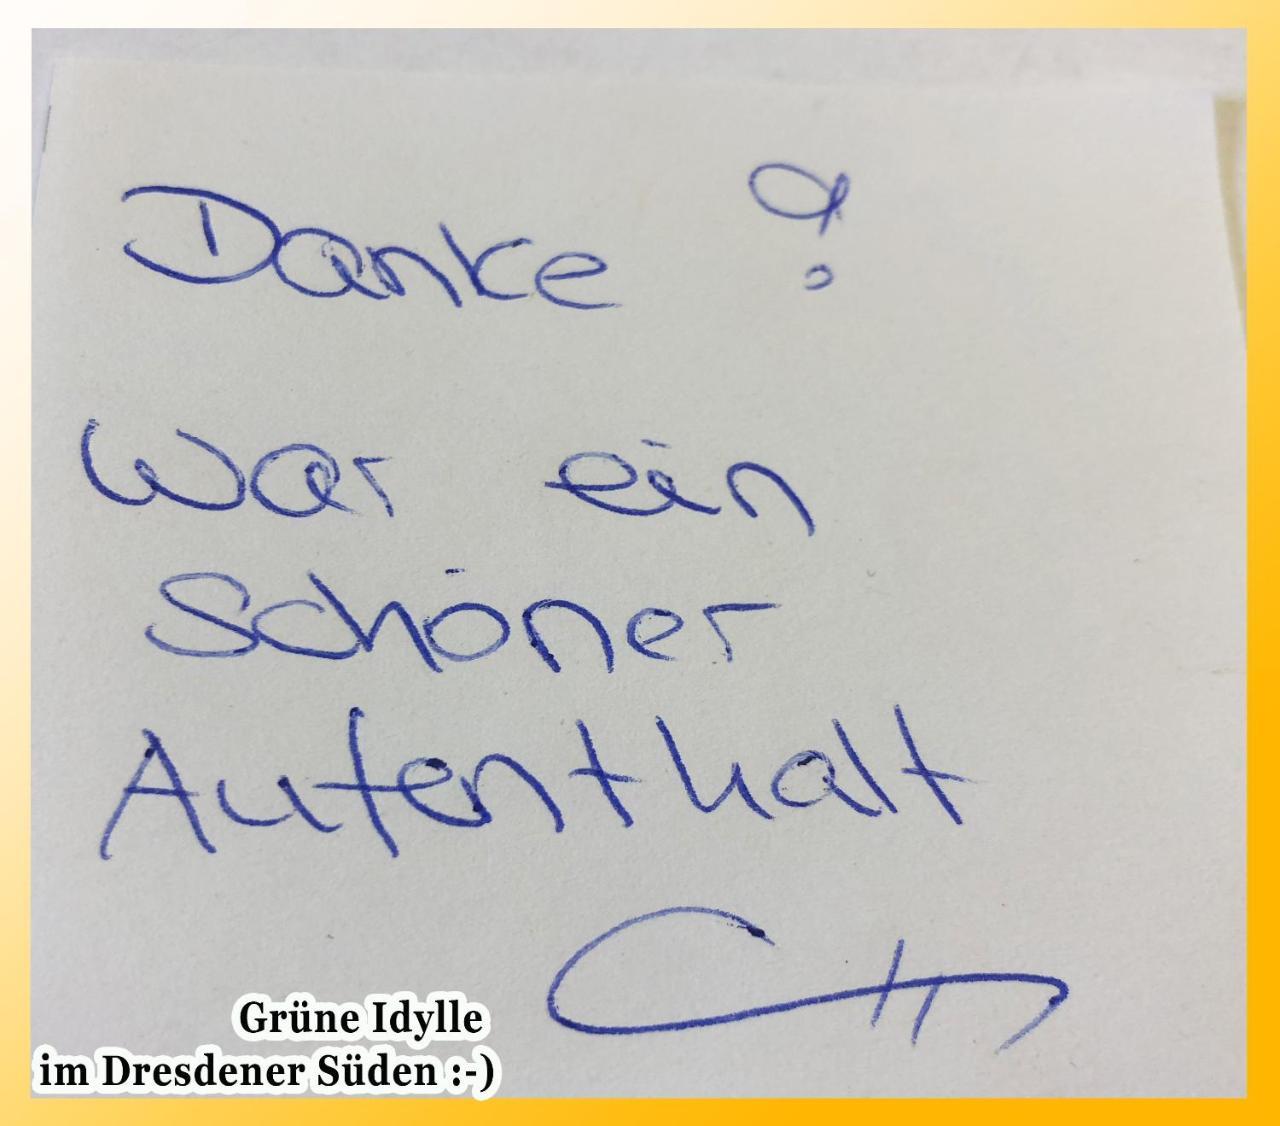 Danke !
war ein
schöner
Aufenthalt
Grüne Idylle
im Dresdener Süden :-)